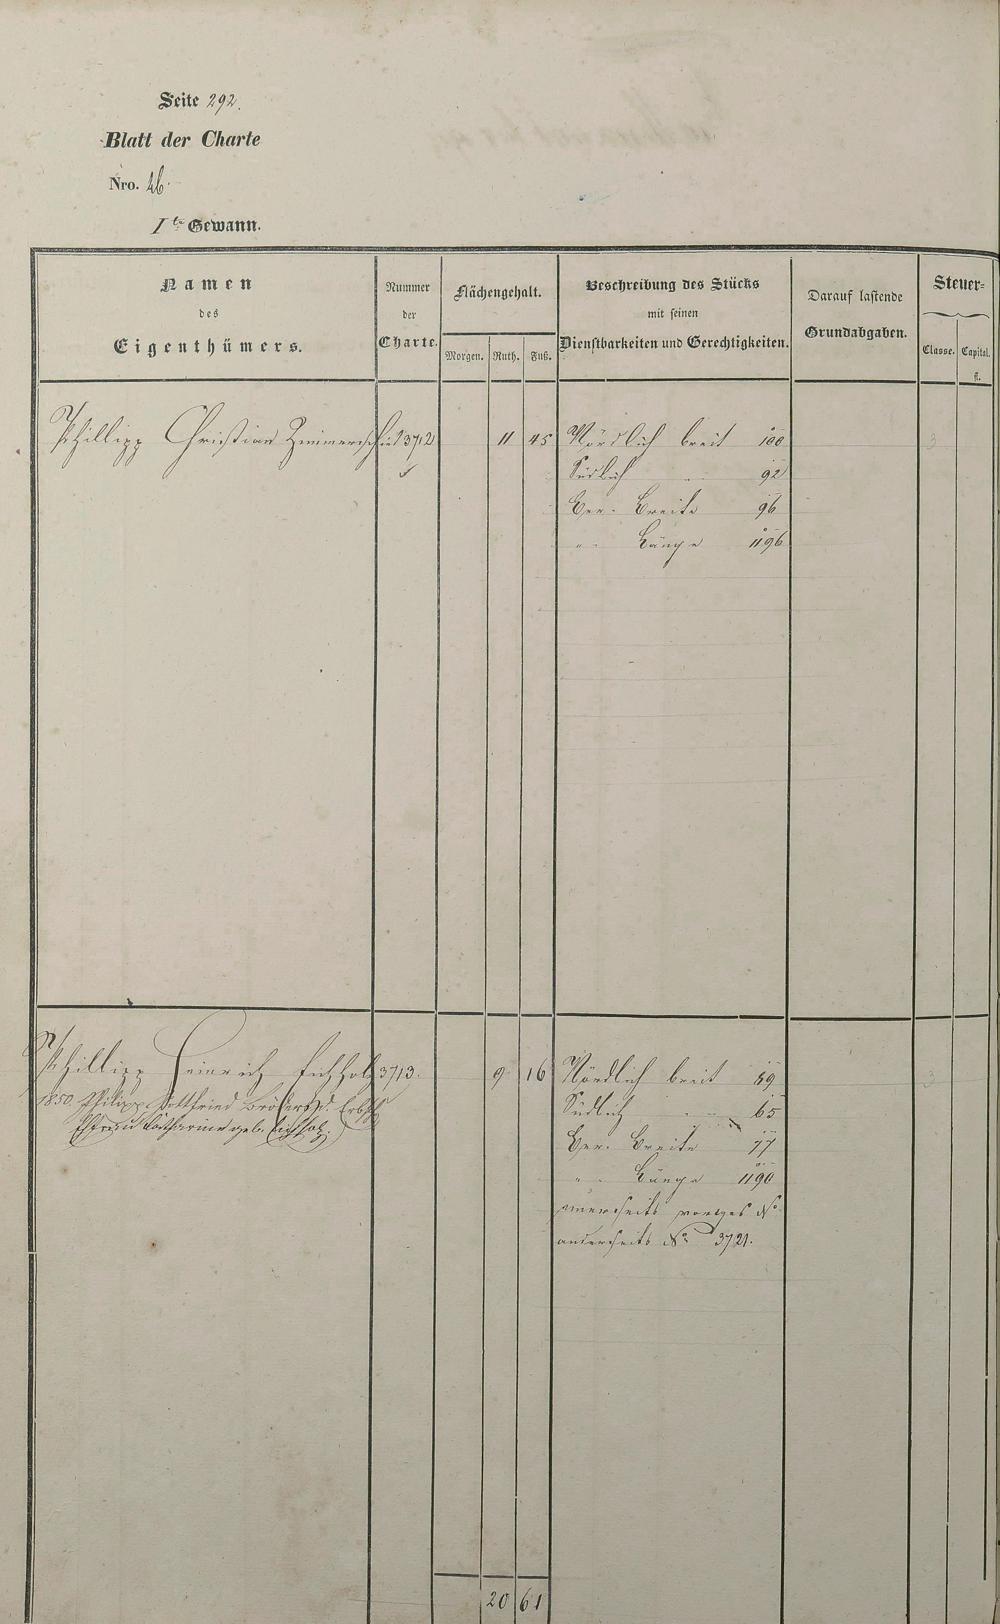 Seite 292.
Blatt der Charte
Nro. 26.
Ite Gewann.
Namen
des
Eigenthümers.
Nummer
der
Charte.
Flächengehalt.
Morgen. Ruth. Fuß.
Beschreibung des Stücks
mit seinen
Dienstbarkeiten und Gerechtigkeiten.
Darauf lastende
Grundabgaben.
Steuer-
Classe. Capital.
fl.
Phillipp Christian Zimmerschied 3712 11 45 Nördlich breit 100 3
Südlich " 92
Ber. Breite 96
" Länge 1196
Phillipp Heinrich Eichholz 3713. 9 16 Nördlich breit 89 3
1850 Philipp Gottfried d. Erbsch
Südlich " 65
Ehefrau Catharine geb. Eichholz.
Ber. Breite 77
" Länge 1190
einerseits voriges No
anderseits No 3721.
20 61